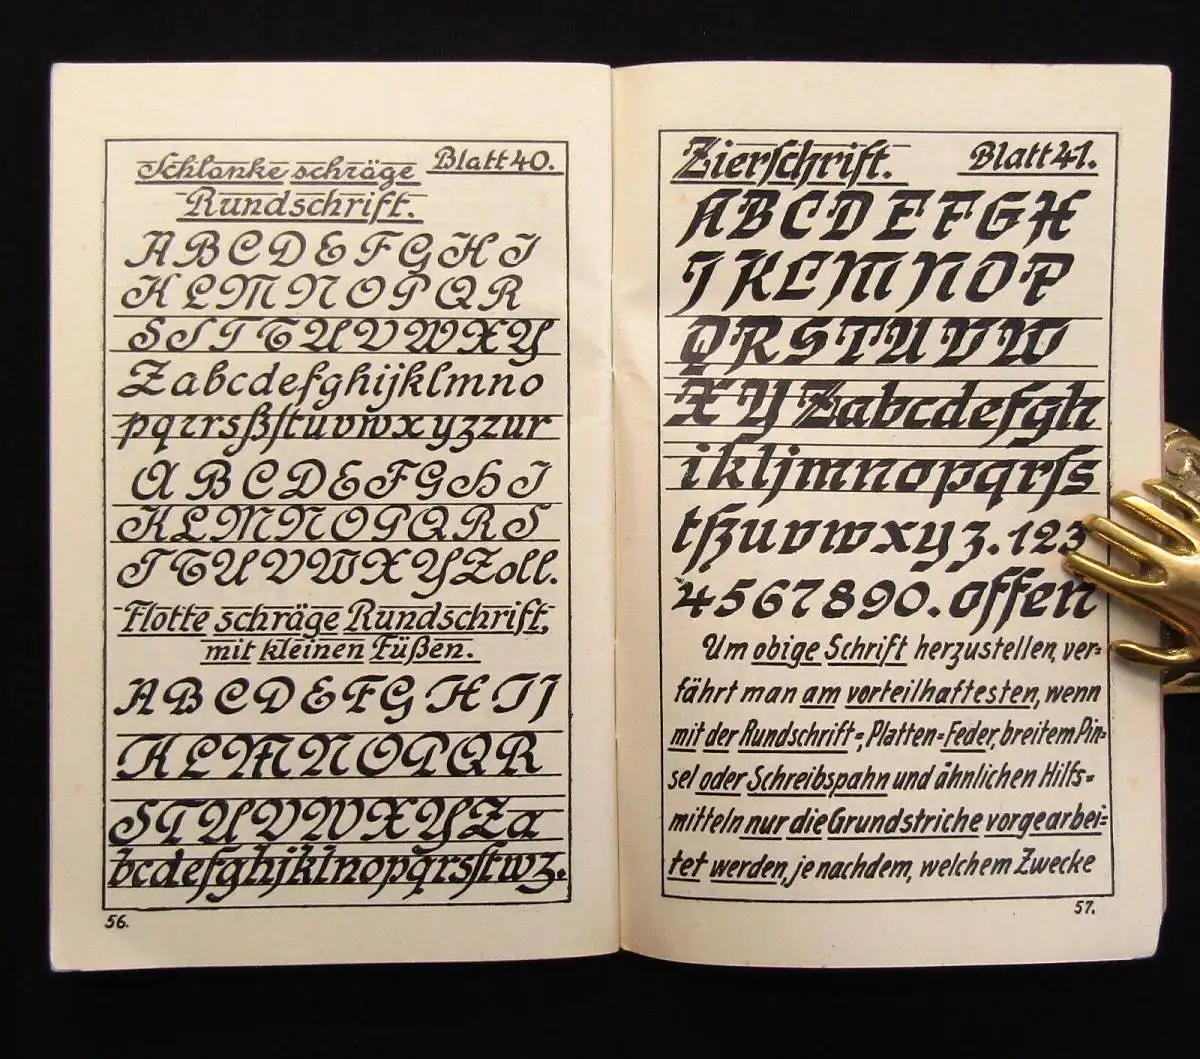 Schlanke schräge Blatt 40.
Rundschrift.
A B C D E F G H I
K L M N O P Q R
S S T T U V W X Y
Z a b c d e f g h i j k l m n o
p q r r s ß ſt u v w x y z z u r
A B C D E F G H I
K L M N O P Q R S
T T U V W X Y Zoll.
Flotte schräge Rundschrift,
mit kleinen Füßen.
A B C D E F G H I J
K L M N O P Q R
S T U V W X Y Z a
b c d e f g h j k l n o p q r s ſt w z.
56.
Zierſchrift. Blatt 41.
A B C D E F G H
J K L M N O P
Q R S T U V W
X Y Z a b c d e f g h
i k l j m n o p q r ſ s
t ß u v w x y z. 1 2 3
4 5 6 7 8 9 0. offen
Um obige Schrift herzustellen, ver=
fährt man am vorteilhaftesten, wenn
mit der Rundschrift=, Platten=Feder, breitem Pin=
sel oder Schreibspahn und ähnlichen Hilfs=
mitteln nur die Grundstriche vorgearbei=
tet werden, je nachdem, welchem Zwecke
57.